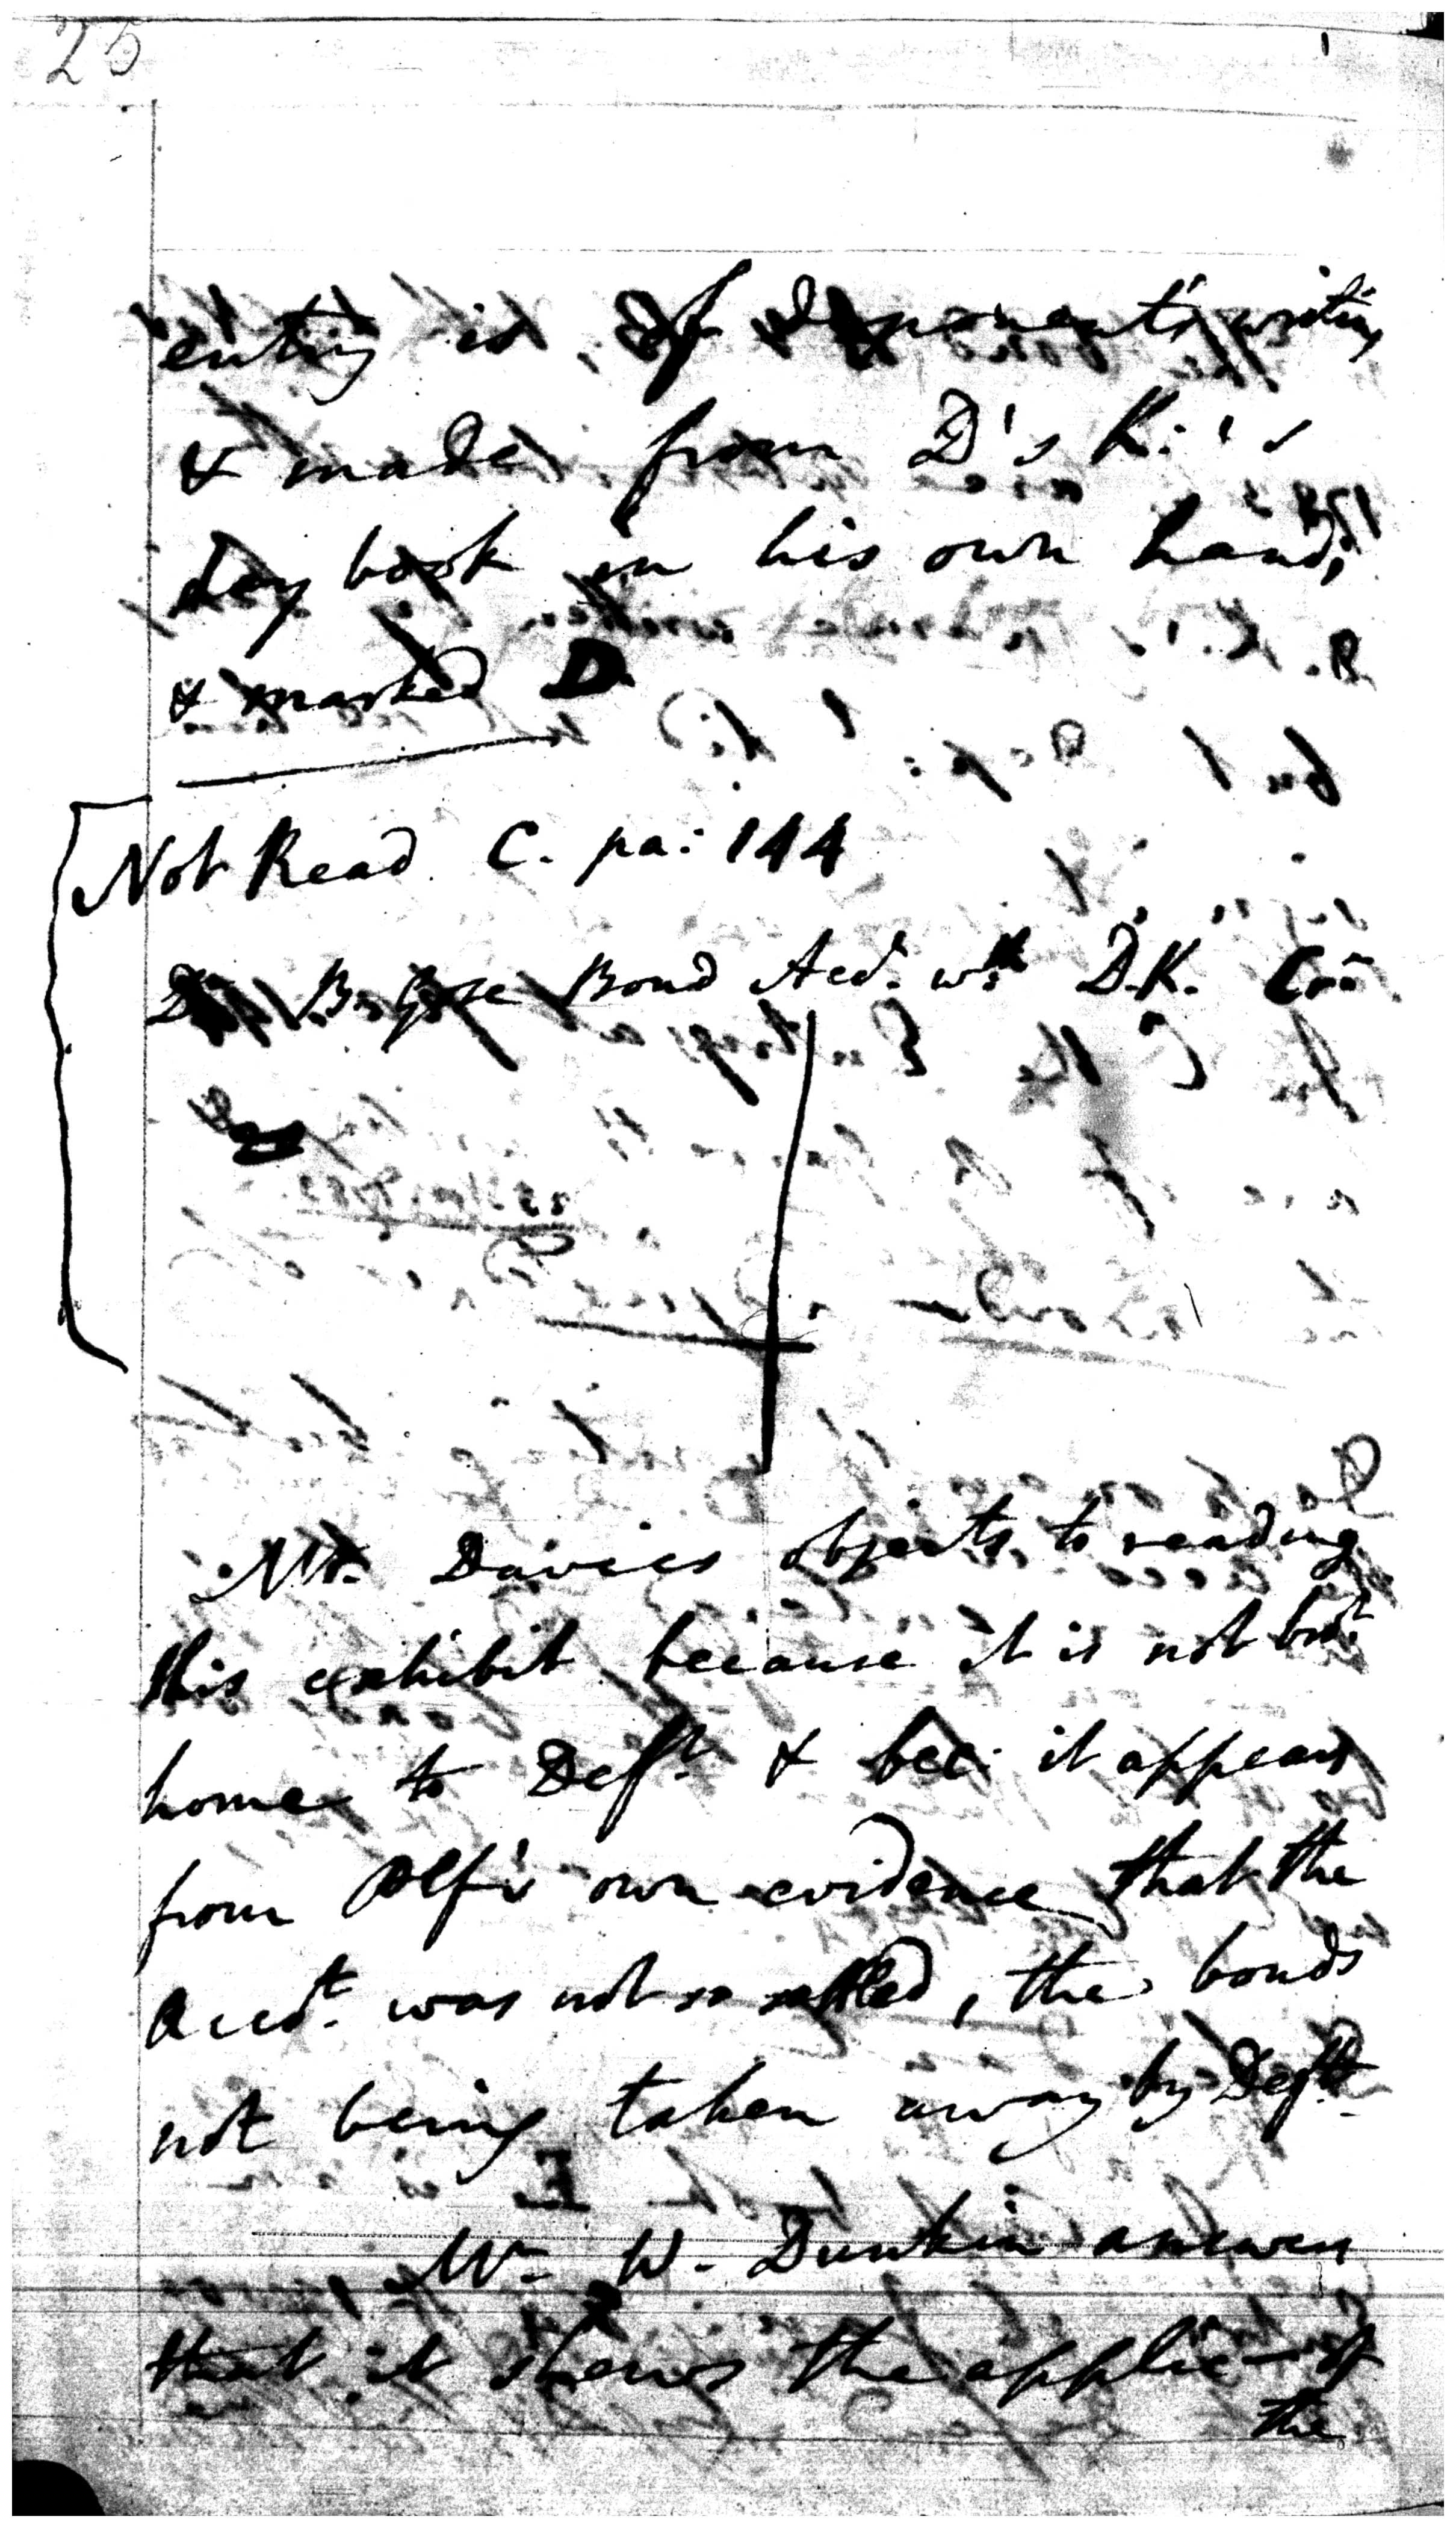 25
entry is, of deponent's writing
& made from D's K:'s
day book in his own hand,
& marked D
Not Read C. pa: 144
Dr B. Bond Acct. wth D.K. Cr.
Mr. Davies objects to reading
this exhibit because it is not brot.
home to Deft. & bec: it appears
from Plf's own evidence that the
Acct. was not so settled, the bonds
not being taken away by Deft.
Mr W. Dunkin answers
that it shews the applic- of
the